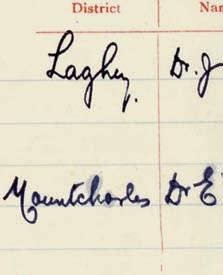 District Nam
Laghey. Dr. J
Mountcharles Dr E